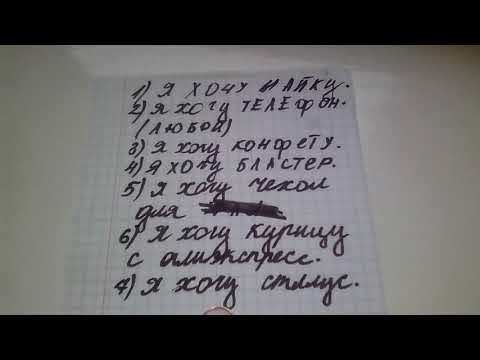 1) Я ХОЧУ МАЙКУ.
2) Я ХОЧУ ТЕЛЕФОН.
(ЛЮБОЙ)
3) Я хочу КОНФЕТУ.
4) Я ХОЧУ БЛАСТЕР.
5) Я хочу чехол
для
6) Я хочу курицу
с алиэкспресс.
7) Я хочу стлус.